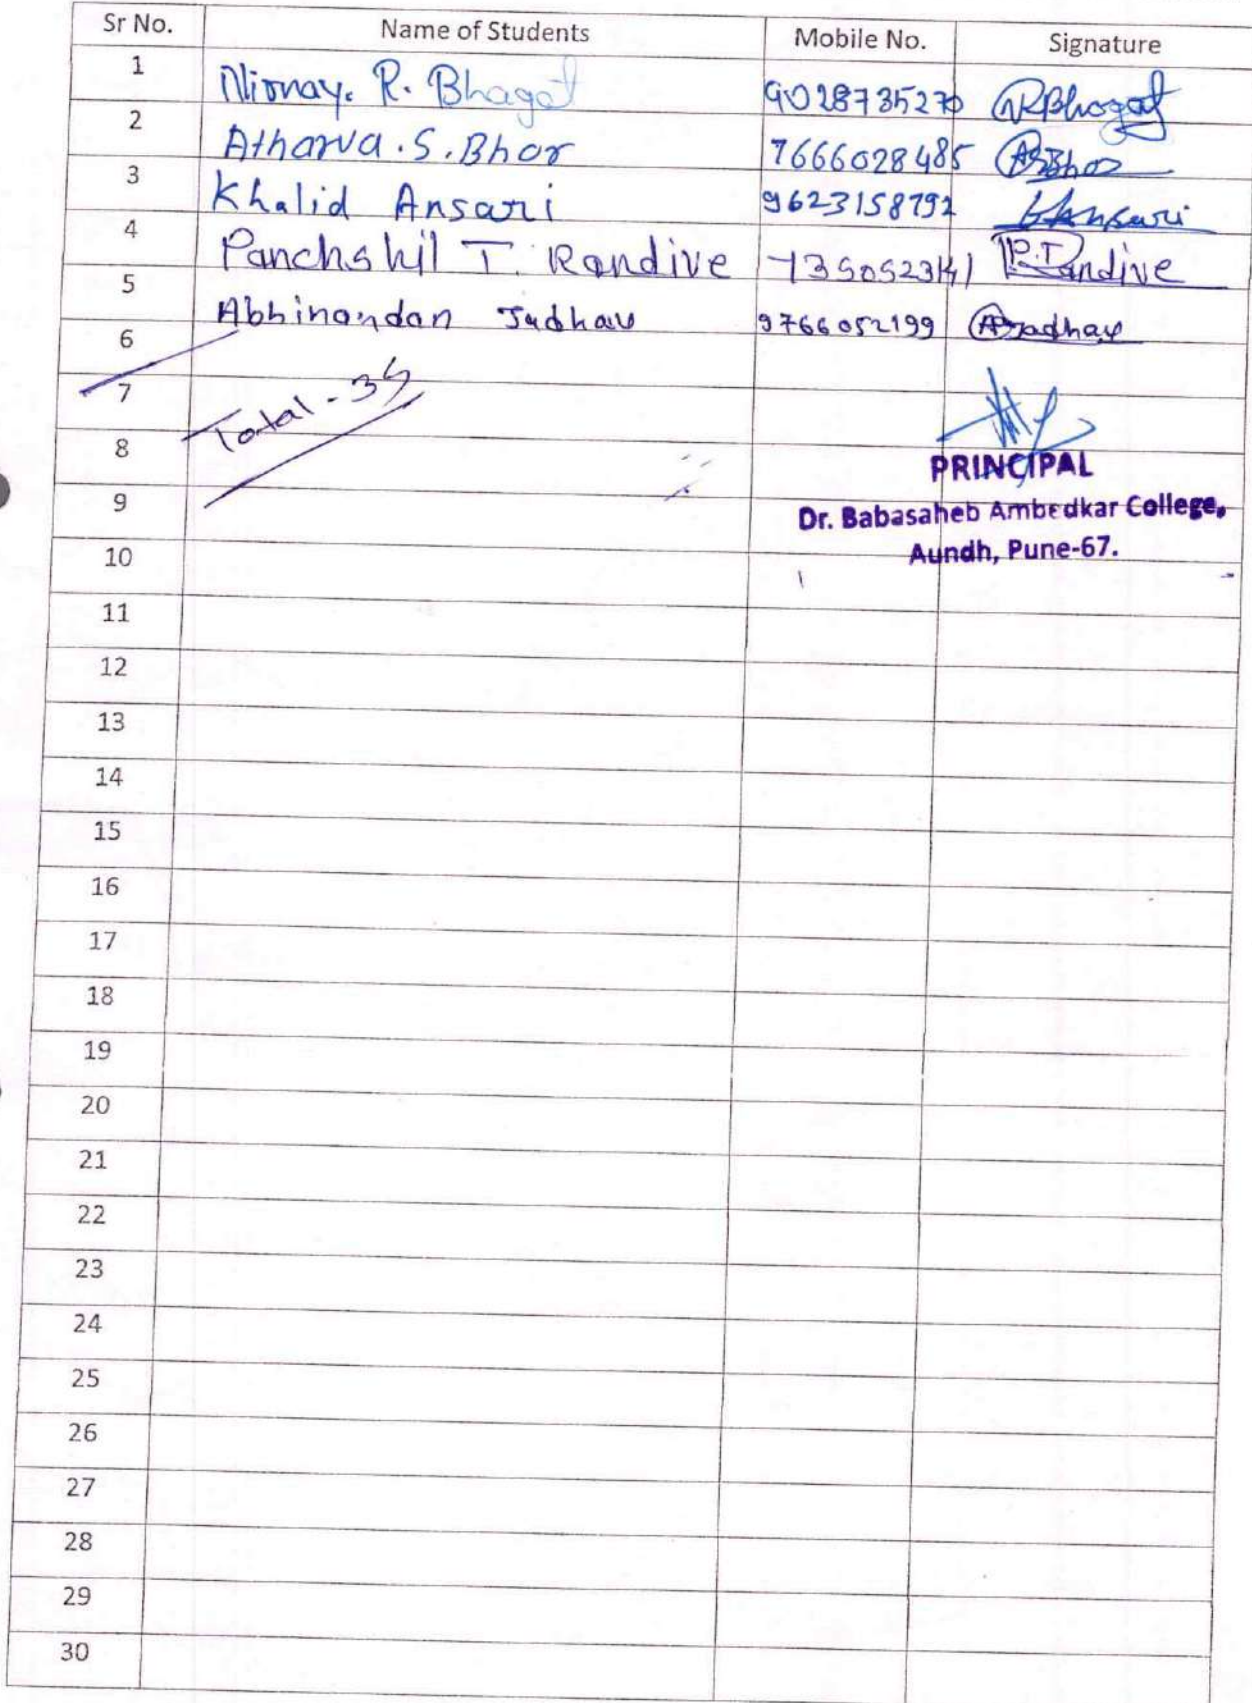 Sr No. Name of Students Mobile No. Signature
1 Nirnay. R. Bhagat 9028735270 NRBhagat
2 Atharva.S.Bhor 7666028485 ASBhor
3 Khalid Ansari 9623158792 Ansari
4 Panchshil T. Randive P.T Randive
5 Abhinandan Jadhav 9766052199 AJadhav
6
7
Total - 35
8
PRINCIPAL
9
Dr. Babasaheb Ambedkar College,
10 Aundh, Pune-67.
11
12
13
14
15
16
17
18
19
20
21
22
23
24
25
26
27
28
29
30